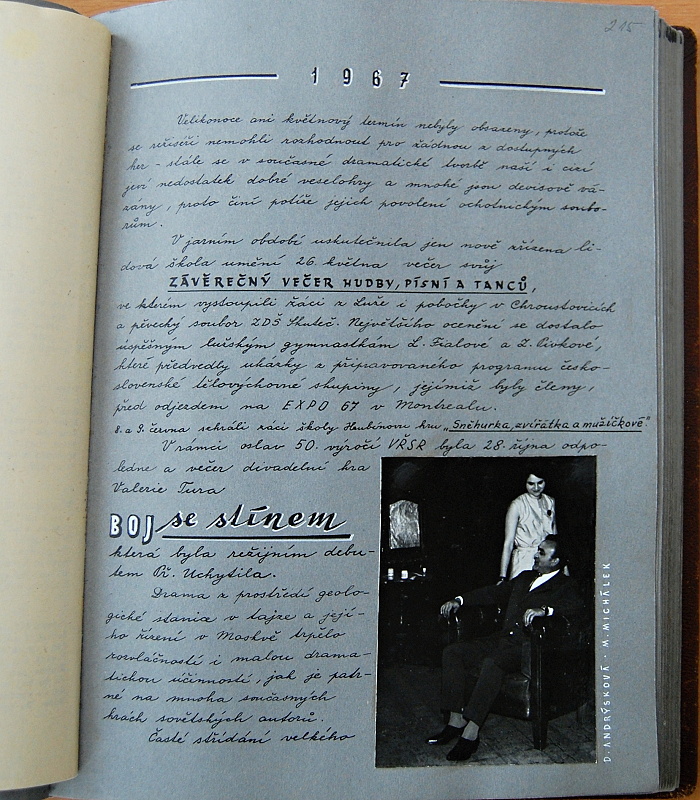 215
1967
Velikonoce ani květnový termín nebyly obsazeny, protože
se režiséři nemohli rozhodnout pro žádnou z dostupných
her - stále se v současné dramatické tvorbě naší i cizí
jeví nedostatek dobré veselohry a mnohé jsou devisově vá-
zány, proto činí potíže jejich povolení ochotnickým soubo-
rům.
V jarním období uskutečnila jen nově zřízena li-
dová škola umění 26. května večer svůj
ZÁVĚREČNÝ VEČER HUDBY, PÍSNÍ A TANCŮ,
ve kterém vystoupili žáci z Luže i pobočky v Chroustovicích
a pěvecký soubor ZDŠ Skuteč. Největšího ocenění se dostalo
úspěšným lužským gymnastkám L. Fialové a Z. Pivkové,
které předvedly ukázky z připravovaného programu česko-
slovenské tělovýchovné skupiny, jejímiž byly členy,
před odjezdem na EXPO 67 v Montrealu.
8. a 9. června sehráli žáci školy Hubínovu hru „Sněhurka, zvířátka a mužíčkové".
V rámci oslav 50. výročí VŘSR byla 28. října odpo-
ledne a večer divadelní hra
Valerie Tura
BOJ se stínem
která byla režijním debu-
tem Př. Uchytila.
Drama z prostředí geolo-
gické stanice v tajze a její-
ho řízení v Moskvě trpělo
rozvláčností i malou drama-
tickou účinností, jak je patr-
né na mnoha současných
hrách sovětských autorů.
Časté střídání velkého
D. ANDRÝSKOVÁ - M. MICHÁLEK